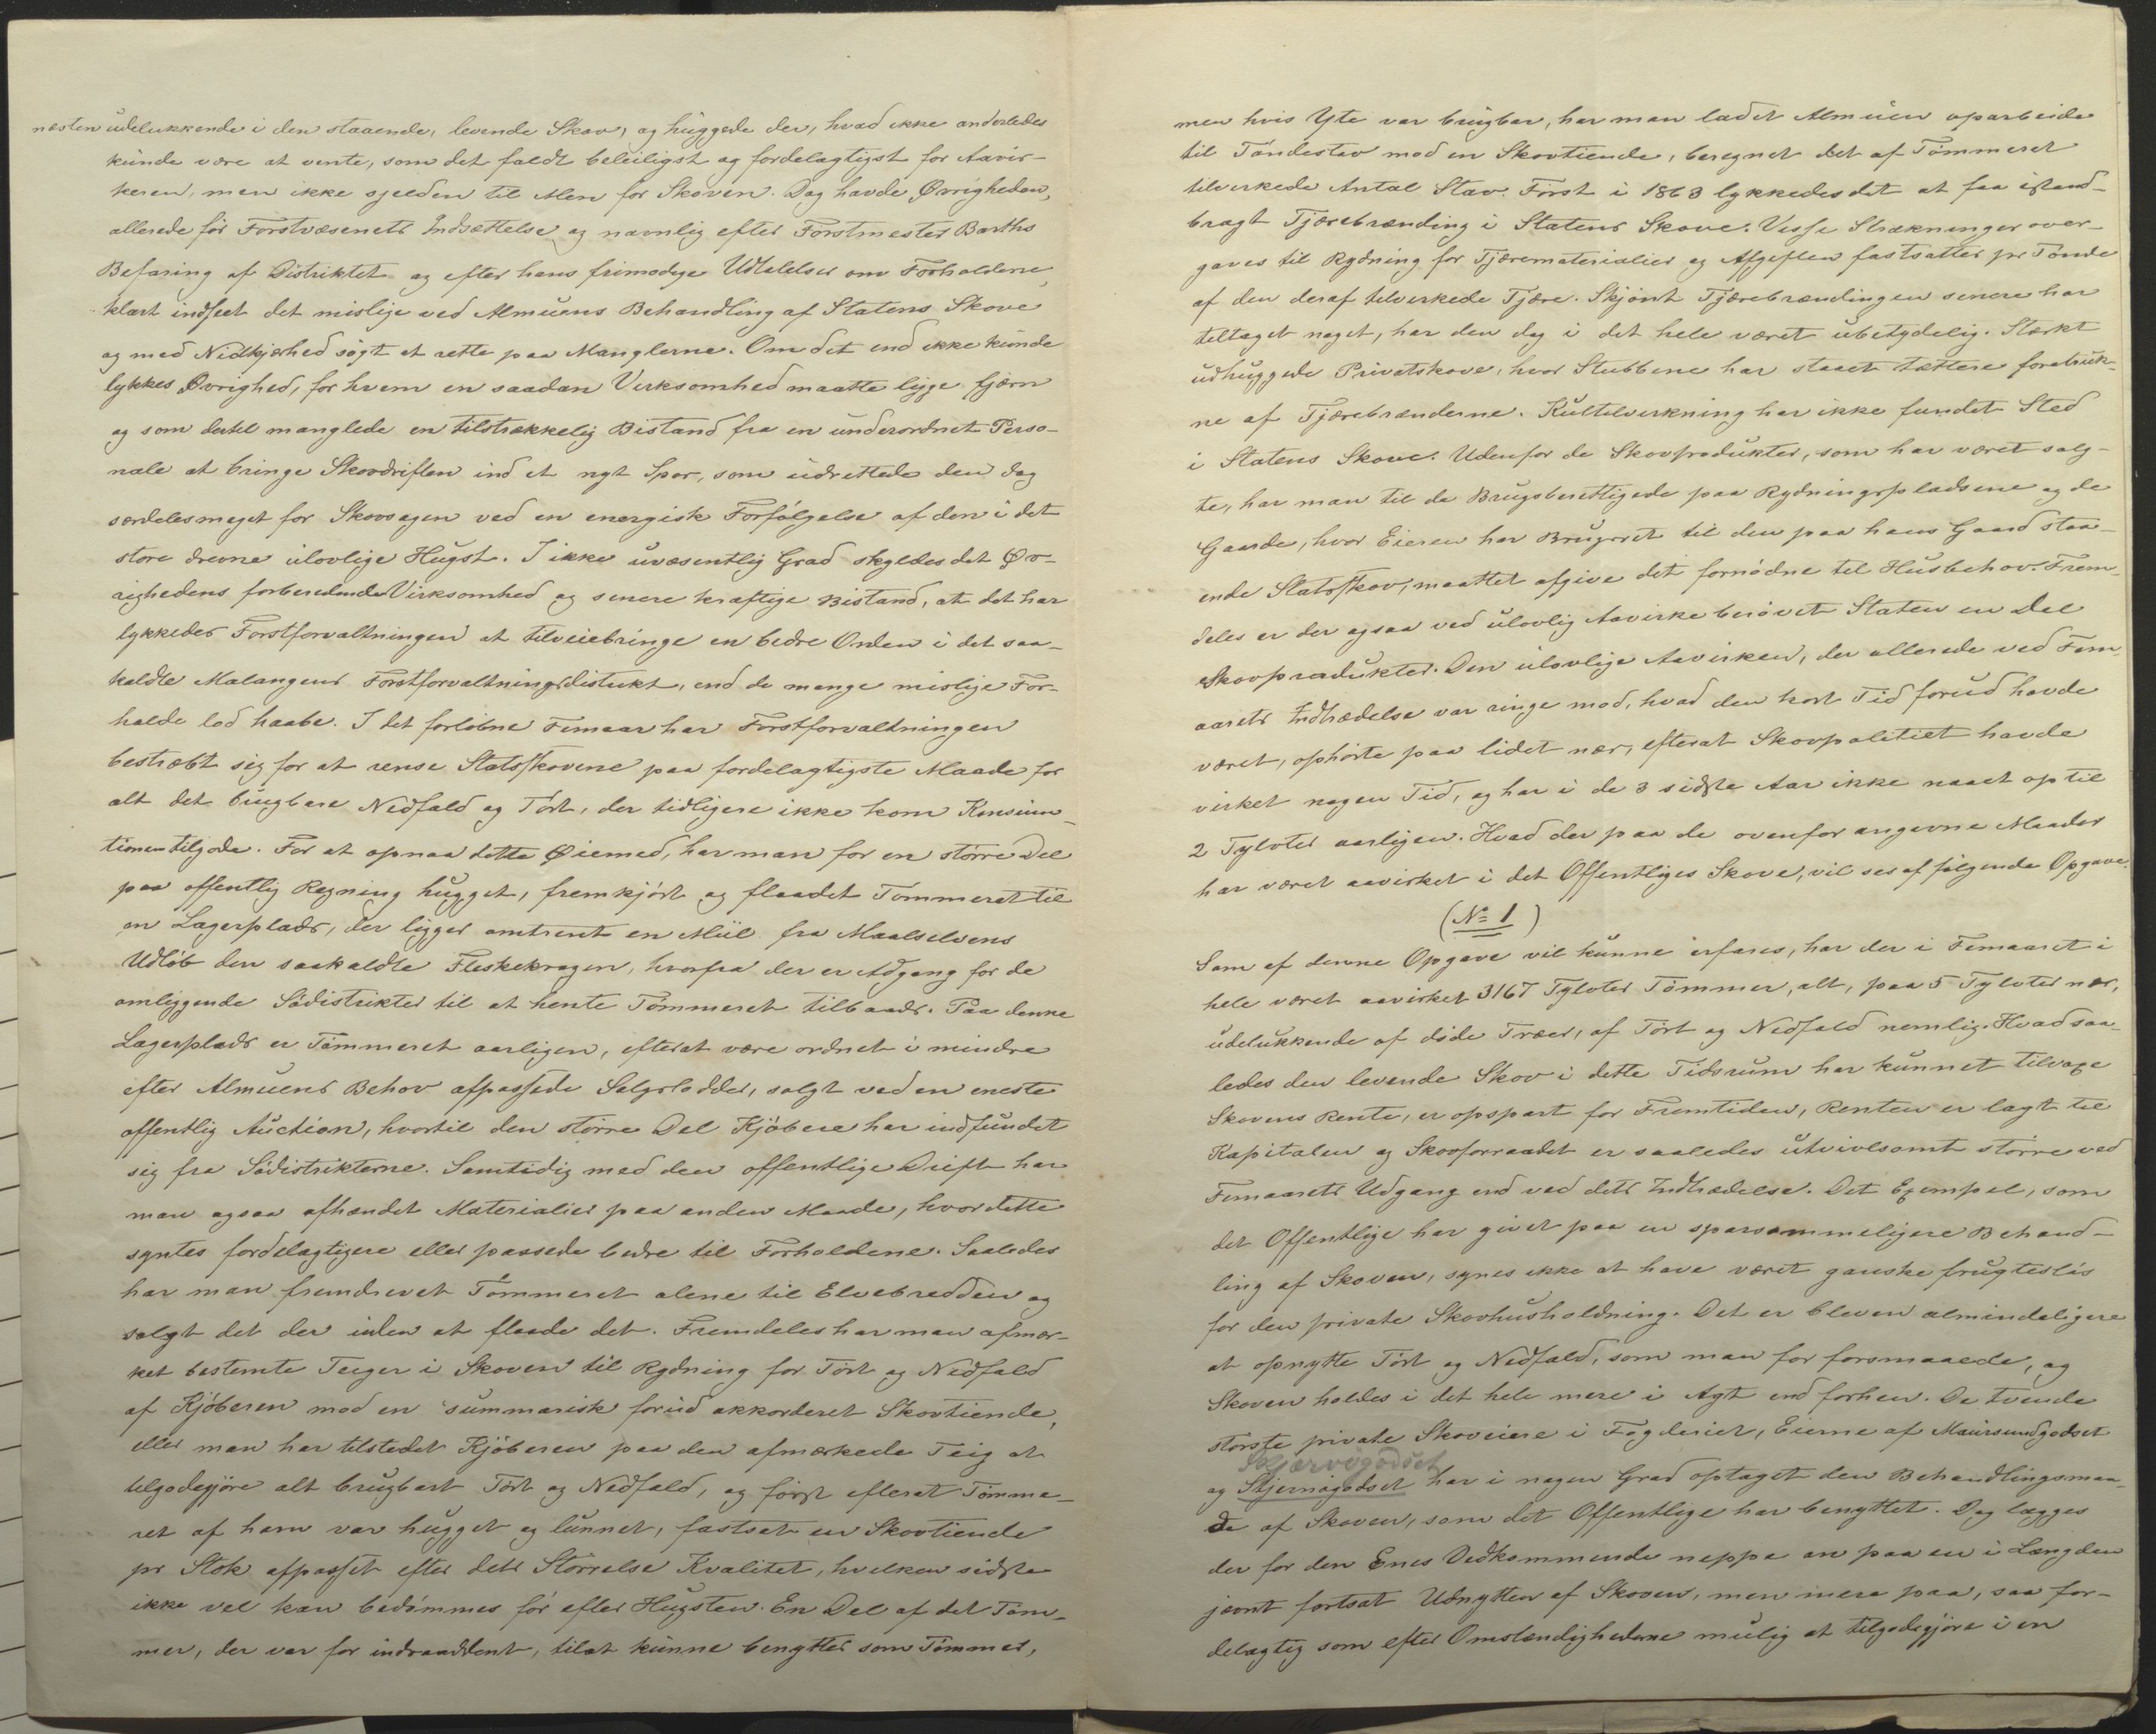 næsten udelukkende i den staaende, levende Skov, og huggede der, hvad ikke anderledes
kunde være at vente, som det faldt beleiligst og fordelagtigst for Aavir-
keren, men ikke sjelden til Men for Skoven. Dog havde Øvrigheden,
allerede før Forstvæsenets Indsættelse og navnlig efter Forstmester Barths
Befaring af Distriktet og efter hans frimodige Udtalelser om Forholdene,
klart indseet det mislige ved Almuens Behandling af Statens Skove
og med Nidkjærhed søgt at rette paa Manglerne. Om det end ikke kunde
lykkes Øvrighed, for hvem en saadan Virksomhed maatte ligge fjern
og som dertil manglede en tilstrækkelig Bistand fra en underordnet Perso-
nale at bringe Skovdriften ind et nyt Spor, som udrettede den dog
særdeles meget for Skovsagen ved en energisk Forfølgelse af den i det
store drevne ulovlige Hugst. I ikke uvæsentlig Grad skyldes det Øv-
righedens forberedende Virksomhed og senere kraftige Bistand, at det har
lykkedes Forstforvaltningen at tilveiebringe en bedre Orden i det saa-
kaldte Malangens Forstforvaltningsdistrikt, end de mange mislige For-
holde lod haabe. I det forløbne Femaar har Forstforvaltningen
bestræbt sig for at rense Statsskovene paa fordelagtigste Maade for
alt det brugbare Nedfald og Tørt, der tidligere ikke kom Konsum-
tionen tilgode. For at opnaa dette Øiemed, har man for en større Del
paa offentlig Regning hugget, fremkjørt og flaadet Tømmeret til
en Lagerplads, der ligger omtrent en Miil fra Maalselvens
Udløb den saakaldte Fleskekragen, hvorfra der er Adgang for de
omliggende Sødistrikter til at hente Tømmeret tilbaads. Paa denne
Lagerplads er Tømmeret aarligen, efterat være ordnet i mindre
efter Almuens Behov afpassede Salgslodder, solgt ved en eneste
offentlig Auction, hvortil den større Del Kjøbere har indfundet
sig fra Sødistrikterne. Samtidig med den offentlige Drift har
man ogsaa afhændet Materialier paa anden Maade, hvor dette
syntes fordelagtigere eller passede bedre til Forholdene. Saaledes
har man fremdrevet Tømmeret alene til Elvebredden og
solgt det der uden at flaade det. Fremdeles har man afmær-
ket bestemte Teiger i Skoven til Rydning for Tørt og Nedfald
af Kjøberen mod en summarisk forud akkorderet Skovtiende,
eller man har tilstedet Kjøberen paa den afmærkede Teig at
tilgodegjøre alt brugbart Tørt og Nedfald, og først efterat Tømme-
ret af ham var hugget og lunnet, fastsat en Skovtiende
pr Stok afpasset efter dets Størrelse Kvalitet, hvilken sidste
ikke vel kan bedømmes før efter Hugsten. En Del af det Tøm-
mer, der var for indraaddent, tilat kunne benyttes som Tømmer,
men hvis Yte var brugbar, har man ladet Almuen oparbeide
til Tøndestav mod en Skovtiende, beregnet det af Tømmeret
tilvirkede Antal Stav. Først i 1863 lykkedes det at faa istand-
bragt Tjærebrænding i Statens Skove. Visse Strækninger over-
gaves til Rydning for Tjærematerialier og Afgiften fastsattes pr Tønde
af den deraf tilvirkede Tjære. Skjønt Tjærebrændingen senere har
tiltaget noget, har den dog i det hele været ubetydelig. Stærkt
udhuggede Privatskove, hvor Stubbene har staaet tættere foretruk-
ne af Tjærebrænderne. Kultilvirkning har ikke fundet Sted
i Statens Skove. Udenfor de Skovprodukter, som har været solg-
te, har man til de Brugsberettigede paa Rydningspladsene og de
Gaarde, hvor Eieren har Brugsret til den paa hans Gaard staa-
ende Statsskov, maattet afgive det fornødne til Husbehov. Frem-
deles er der ogsaa ved ulovlig Aavirke berøvet Staten en Del
Skovprodukter. Den ulovlige Aavirken, der allerede ved Fem-
aarets Indtrædelse var ringe mod, hvad den kort Tid forud havde
været, ophørte paa lidet nær, efterat Skovpolitiet havde
virket nogen Tid, og har i de 3 sidste Aar ikke naaet op til
2 Tylvter aarligen. Hvad der paa de ovenfor angivne Maader
har været aavirket i det Offentliges Skove, vil ses af følgende Opgave.
(No 1)
Som af denne Opgave vil kunne erfares, har der i Femaaret i
hele været aavirket 3167 Tylvter Tømmer, alt, paa 5 Tylvter nær,
udelukkende af døde Træer, af Tørt og Nedfald nemlig. Hvad saa-
ledes den levende Skov i dette Tidsrum har kunnet tilvoxe
Skovens Rente, er opspart for Fremtiden, Renten er lagt til
Kapitalen og Skovforraadet er saaledes utvivlsomt større ved
Femaarets Udgang end ved dets Indtrædelse. Det Exempel, som
det Offentlige har givet paa en sparsommeligere Behand-
ling af Skoven, synes ikke at have været ganske frugtesløs
for den private Skovhusholdning. Det er bleven almindeligere
at opnytte Tørt og Nedfald, som man før forsmaaede, og
Skoven holdes i det hele mere i Agt end forhen. De tvende
største private Skoveiere i Fogderiet, Eierne af Maursundgodset
Skjærvøgodset
og Skjernøgodset har i nogen Grad optaget den Behandlingsmaa-
de af Skoven, som det Offentlige har benyttet. Dog lægges
der for den Enes Vedkommende neppe an paa en i Længden
jævnt fortsat Udnytten af Skoven, men mere paa, saa for-
delagtig som efter Omstændighederne mulig at tilgodegjøre i en